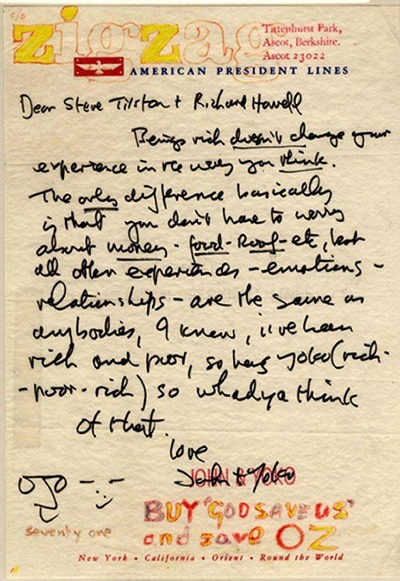 c/o
zigzag
Tittenhurst Park,
Ascot, Berkshire.
Ascot 23022
AMERICAN PRESIDENT LINES
Dear Steve Tilston + Richard Howell
Being rich doesn't change your
experience in the way you think.
The only difference basically
is that you don't have to worry
about money - food - Roof - etc, but
all other experiences - emotions -
relationships - are the same as
anybodies, I know, i've been
rich and poor, so has yoko (rich -
- poor - rich) so whadya think
of that.
love
John + Yoko
JOHN & YOKO
BUY 'GOD SAVE US'
and save OZ
seventy one
New York • California • Orient • Round the World